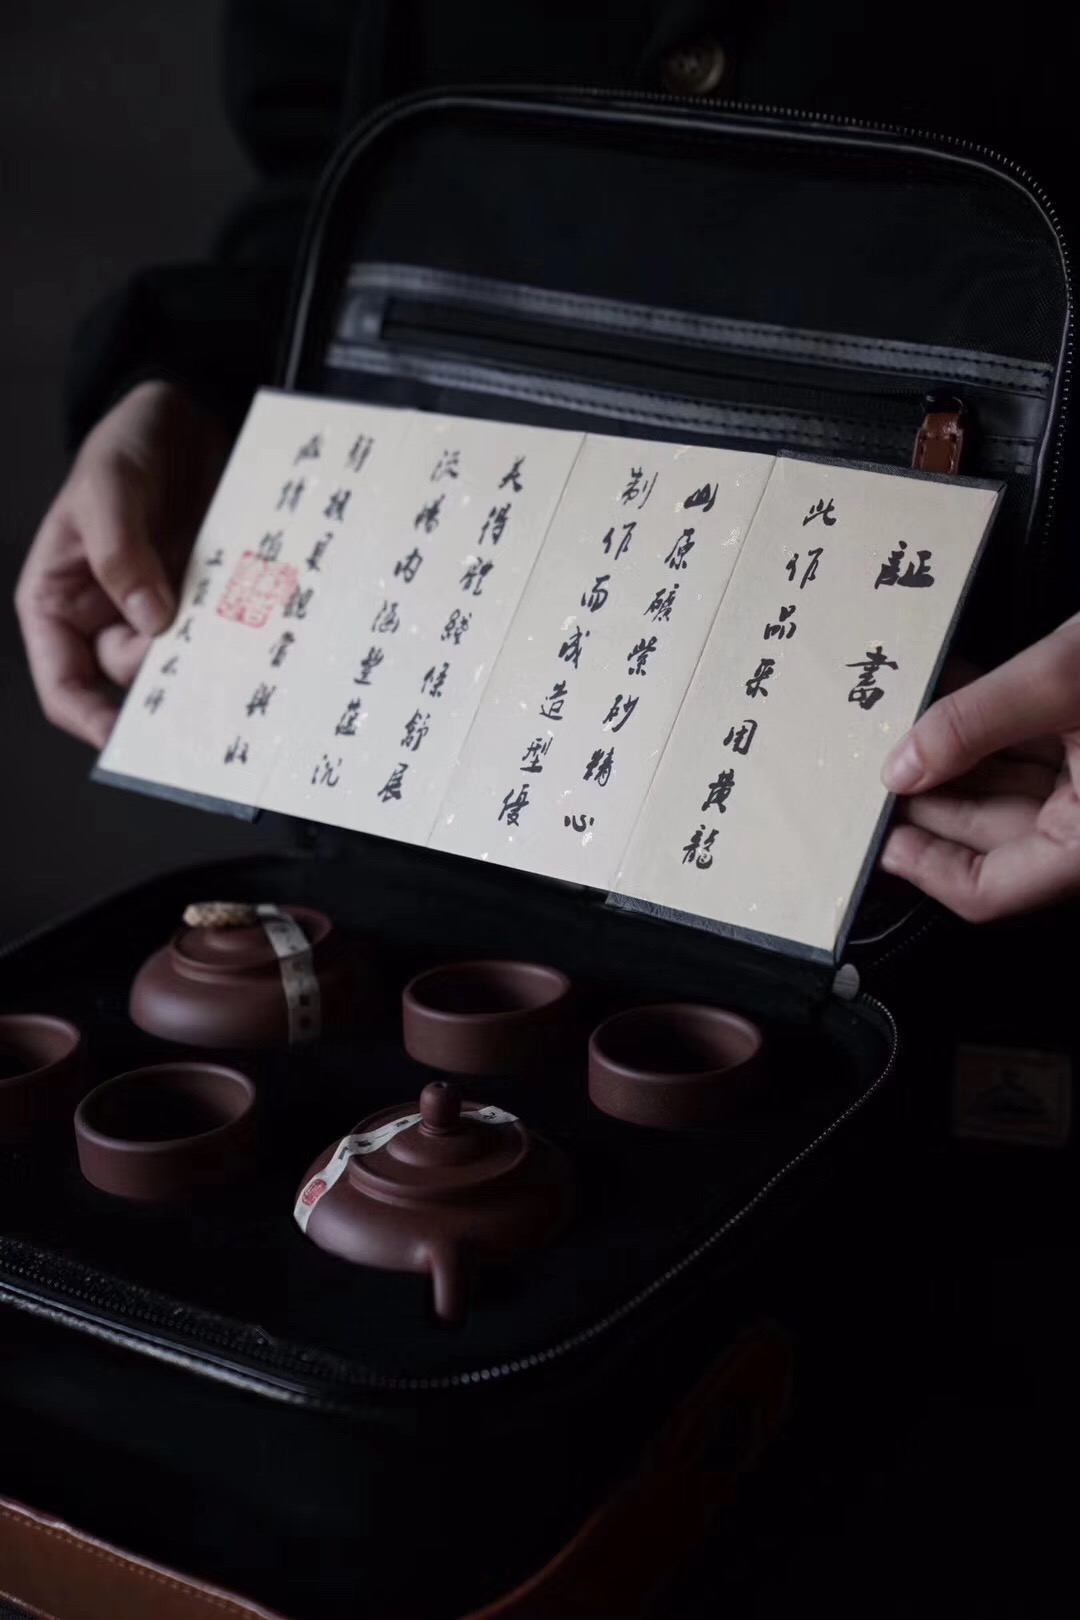 証書
此作品采用黄龍
山原礦紫砂精心
制作而成造型優
美得體綫條舒展
流暢内涵豐蕴沉
靜極具觀賞與收